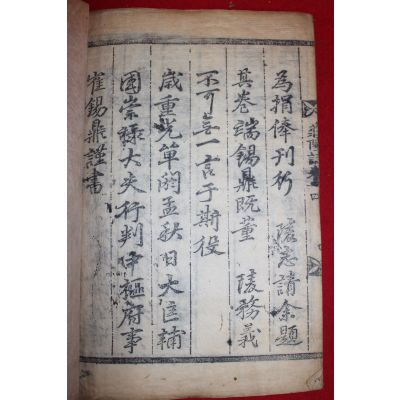 為捐俸刊行 陵志請余題
其卷端錫鼎旣董 陵務義
不可無一言于斯役
歲重光單閼孟秋日大匡輔
國崇祿大夫行判中樞府事
崔錫鼎謹書